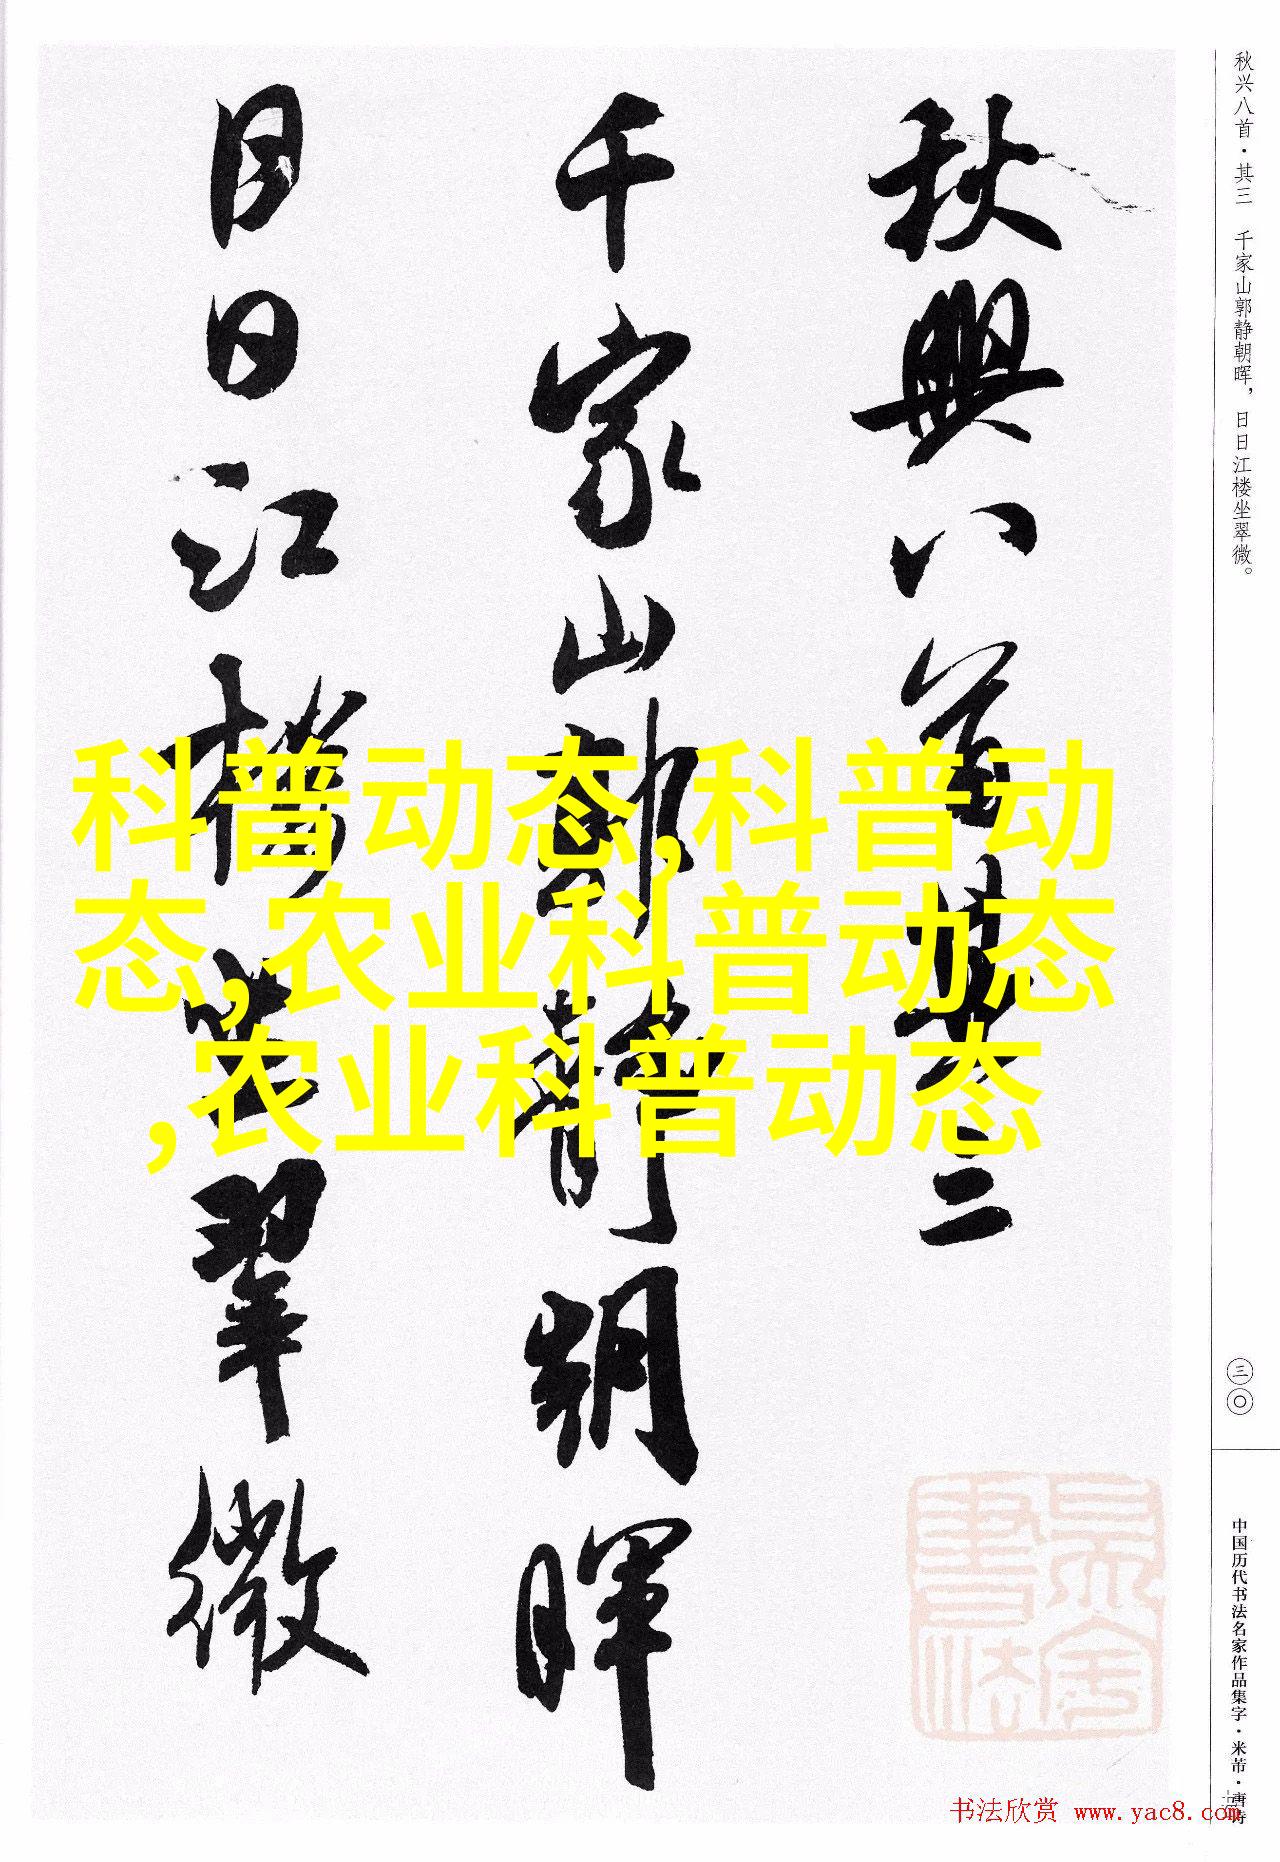 秋兴八首·其三 千家山郭静朝晖，日日江楼坐翠微。
三〇
中国历代书法名家作品集字·米芾·唐诗
秋興八首其三
千家山郭靜朝暉
日日江樓坐翠微
科普动态,科普动
态,农业科普动态
,农业科普动态
书法欣赏 www.yac8.com